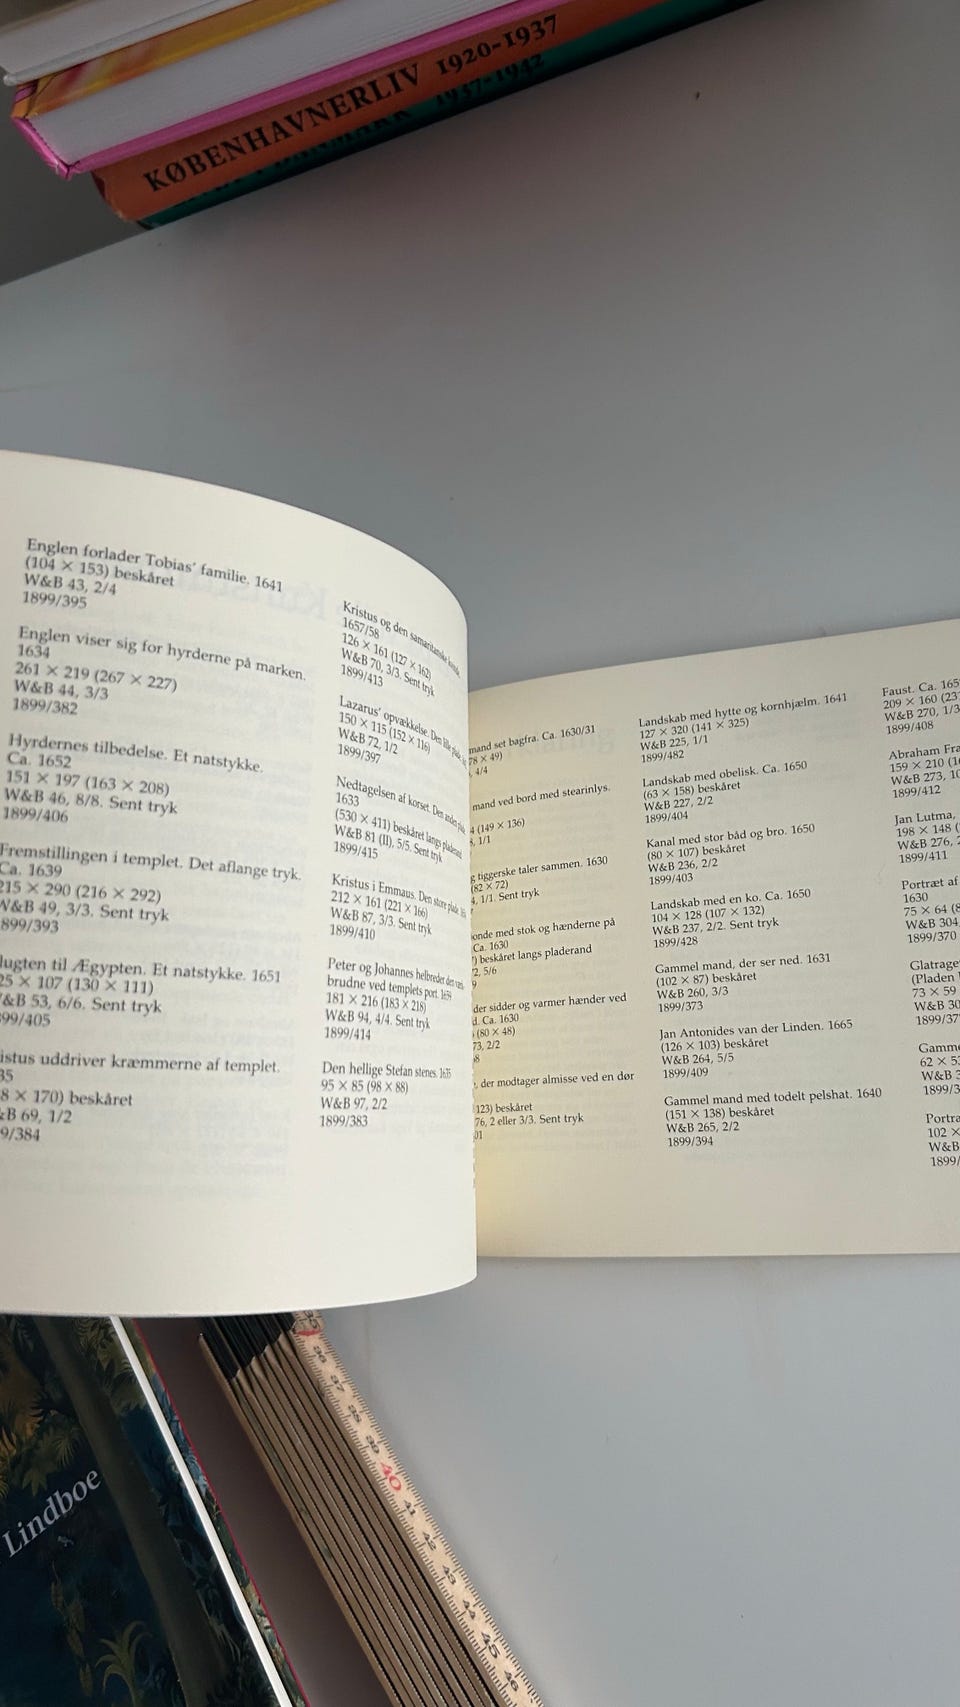 KØBENHAVNERLIV 1920-1937
1937-1942
DANMARK
Englen forlader Tobias' familie. 1641
(104 × 153) beskåret
W&B 43, 2/4
1899/395
Englen viser sig for hyrderne på marken.
1634
261 × 219 (267 × 227)
W&B 44, 3/3
1899/382
Hyrdernes tilbedelse. Et natstykke.
Ca. 1652
151 × 197 (163 × 208)
W&B 46, 8/8. Sent tryk
1899/406
Fremstillingen i templet. Det aflange tryk.
Ca. 1639
215 × 290 (216 × 292)
W&B 49, 3/3. Sent tryk
899/393
lugten til Ægypten. Et natstykke. 1651
25 × 107 (130 × 111)
&B 53, 6/6. Sent tryk
99/405
istus uddriver kræmmerne af templet.
35
8 × 170) beskåret
&B 69, 1/2
9/384
Kristus og den samaritanske kvinde.
1657/58
126 × 161 (127 × 162)
W&B 70, 3/3. Sent tryk
1899/413
Lazarus' opvækkelse. Den lille plade.
150 × 115 (152 × 116)
W&B 72, 1/2
1899/397
Nedtagelsen af korset. Den anden plade.
1633
(530 × 411) beskåret langs pladerand
W&B 81 (II), 5/5. Sent tryk
1899/415
Kristus i Emmaus. Den store plade.
212 × 161 (221 × 166)
W&B 87, 3/3. Sent tryk
1899/410
Peter og Johannes helbreder den
brudne ved templets port. 1659
181 × 216 (183 × 218)
W&B 94, 4/4. Sent tryk
1899/414
Den hellige Stefan stenes. 1635
95 × 85 (98 × 88)
W&B 97, 2/2
1899/383
mand set bagfra. Ca. 1630/31
78 × 49)
, 4/4
mand ved bord med stearinlys.
4 (149 × 136)
8, 1/1
g tiggerske taler sammen. 1630
(82 × 72)
4, 1/1. Sent tryk
onde med stok og hænderne på
Ca. 1630
) beskåret langs pladerand
2, 5/6
9
der sidder og varmer hænder ved
d. Ca. 1630
(80 × 48)
73, 2/2
8
, der modtager almisse ved en dør
123) beskåret
76, 2 eller 3/3. Sent tryk
01
Landskab med hytte og kornhjælm. 1641
127 × 320 (141 × 325)
W&B 225, 1/1
1899/482
Landskab med obelisk. Ca. 1650
(63 × 158) beskåret
W&B 227, 2/2
1899/404
Kanal med stor båd og bro. 1650
(80 × 107) beskåret
W&B 236, 2/2
1899/403
Landskab med en ko. Ca. 1650
104 × 128 (107 × 132)
W&B 237, 2/2. Sent tryk
1899/428
Gammel mand, der ser ned. 1631
(102 × 87) beskåret
W&B 260, 3/3
1899/373
Jan Antonides van der Linden. 1665
(126 × 103) beskåret
W&B 264, 5/5
1899/409
Gammel mand med todelt pelshat. 1640
(151 × 138) beskåret
W&B 265, 2/2
1899/394
Faust. Ca. 165
209 × 160 (23
W&B 270, 1/3
1899/408
Abraham Fra
159 × 210 (1
W&B 273, 10
1899/412
Jan Lutma,
198 × 148 (
W&B 276, 2
1899/411
Portræt af
1630
75 × 64 (8
W&B 304,
1899/370
Glatrage
(Pladen
73 × 59
W&B 30
1899/37
Gamme
62 × 53
W&B 3
1899/3
Portræ
102 ×
W&B
1899/
Lindboe
35
36
37
38
39
40
41
42
43
44
45
46